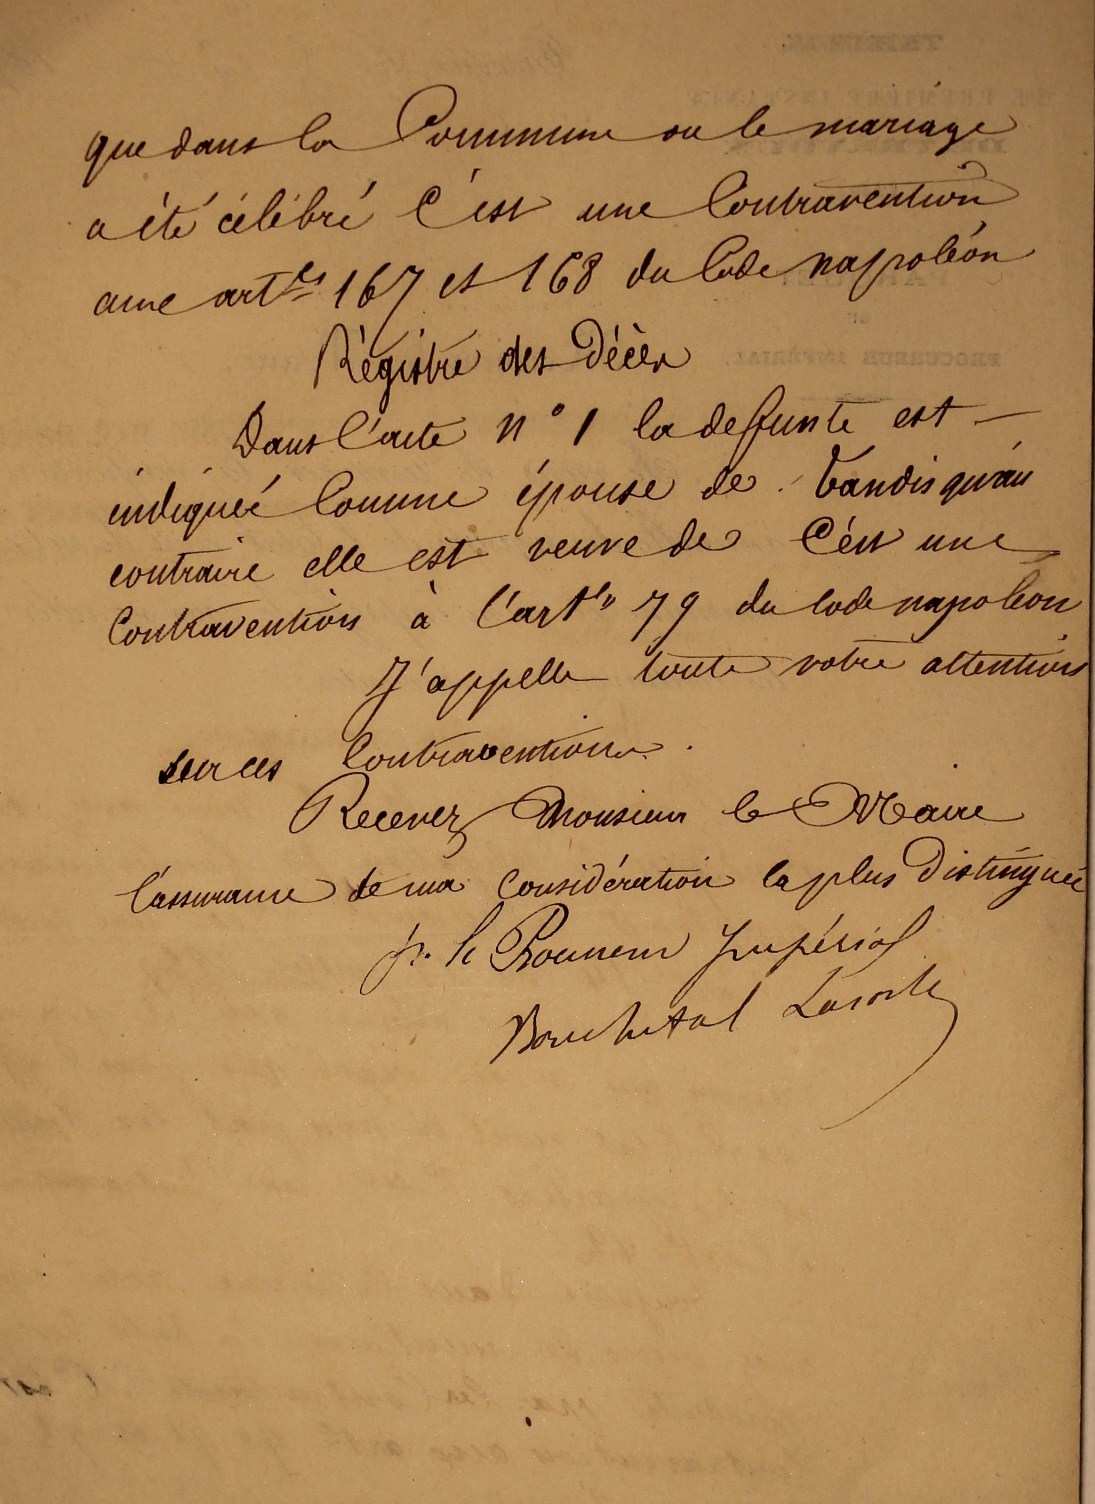 que dans la Commune ou le mariage
a été célébré C'est une Contravention
aux art.les 167 et 168 du Code napoléon
Régistre des Décès
Dans l'acte n° 1 la deffunte est —
indiqueé Comme épouse de . tandis qu'au
contraire elle est veuve de C'est une
Contravention à l'art.le 79 du Code napoléon
J'appelle toute votre attention
sur ces Contraventions.
Recevez Monsieur le Maire
l'assurance de ma Considération la plus Distinguée
p. le Procureur Impérial
PROCUREUR IMPÉRIAL